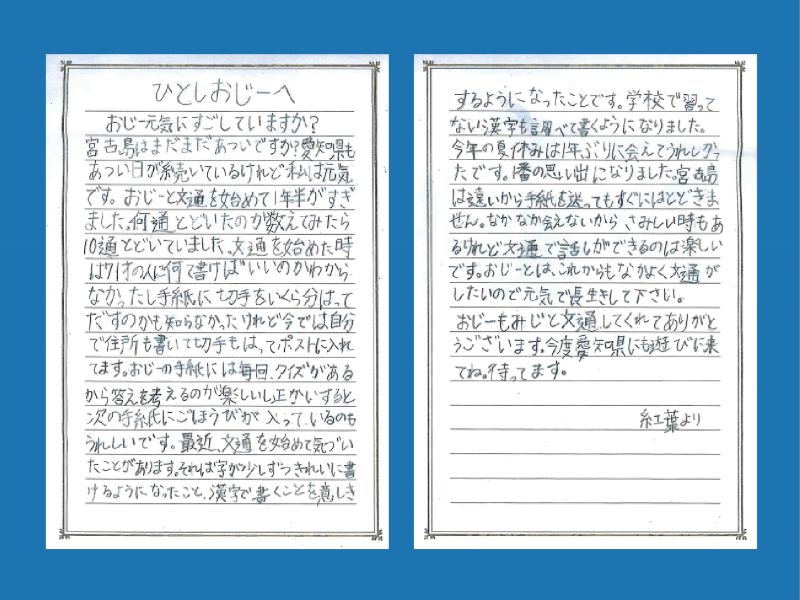 ひとしおじーへ
おじー元気にすごしていますか?
宮古島はまだまだあついですか?愛知県も
あつい日が続いているけれど私は元気
です。おじーと文通を始めて1年半がすぎ
ました。何通とどいたのか数えてみたら
10通とどいていました。文通を始めた時
は71才の人に何て書けばいいのかわから
なかったし手紙に切手をいくら分はって
だすのかも知らなかったけれど今では自分
で住所も書いて切手もはってポストに入れ
てます。おじーの手紙には毎回、クイズがある
から答えを考えるのが楽しいし正かいすると
次の手紙にごほうびが入っているのも
うれしいです。最近、文通を始めて気づい
たことがあります。それは字が少しずつきれいに書
けるようになったこと、漢字で書くことを意しき
するようになったことです。学校で習って
ない漢字も調べて書くようになりました。
今年の夏休みは1年ぶりに会えてうれしかっ
たです。1番の思い出になりました。宮古島
は遠いから手紙を送ってもすぐにはとどきま
せん。なかなか会えないからさみしい時もあ
るけれど文通で話しができるのは楽しい
です。おじーとは、これからもなかよく文通が
したいので元気で長生きして下さい。
おじーもみじと文通してくれてありがと
うございます。今度愛知県にも遊びに来
てね。待ってます。
紅葉より